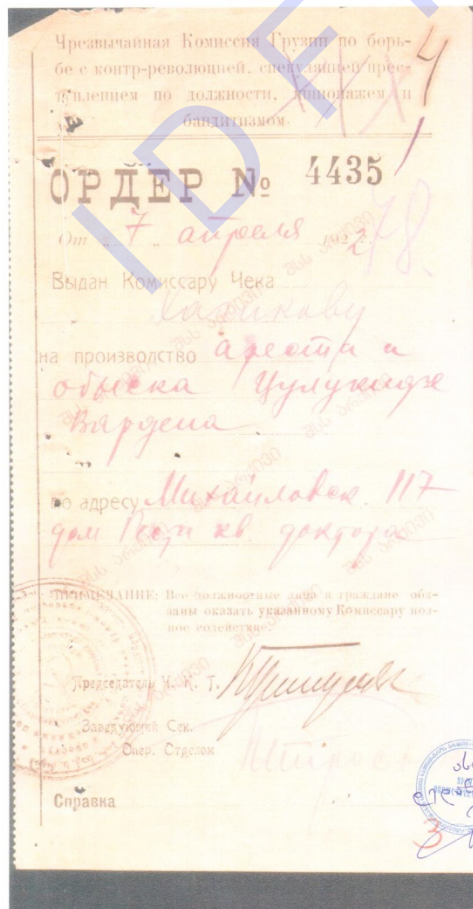 Чрезвычайная Комиссия Грузии по борь-
бе с контр-революцией, спекуляцией прес-
туплением по должности, шпионажем и
бандитизмом.
ОРДЕР № 4435
От „7„ апреля 1922
78.
Выдан Комиссару Чека
на производство ареста и
обыска Цулукидзе
Вардена
по адресу Михайловск. 117
дом кв. доктора
ПРИМЕЧАНИЕ: Все должностные лица и граждане обя-
заны оказать указанному Комиссару пол-
ное содействие.
Председатель Ч. К. Г.
Заведующий Сек.
Опер. Отделом
Справка
IDFI